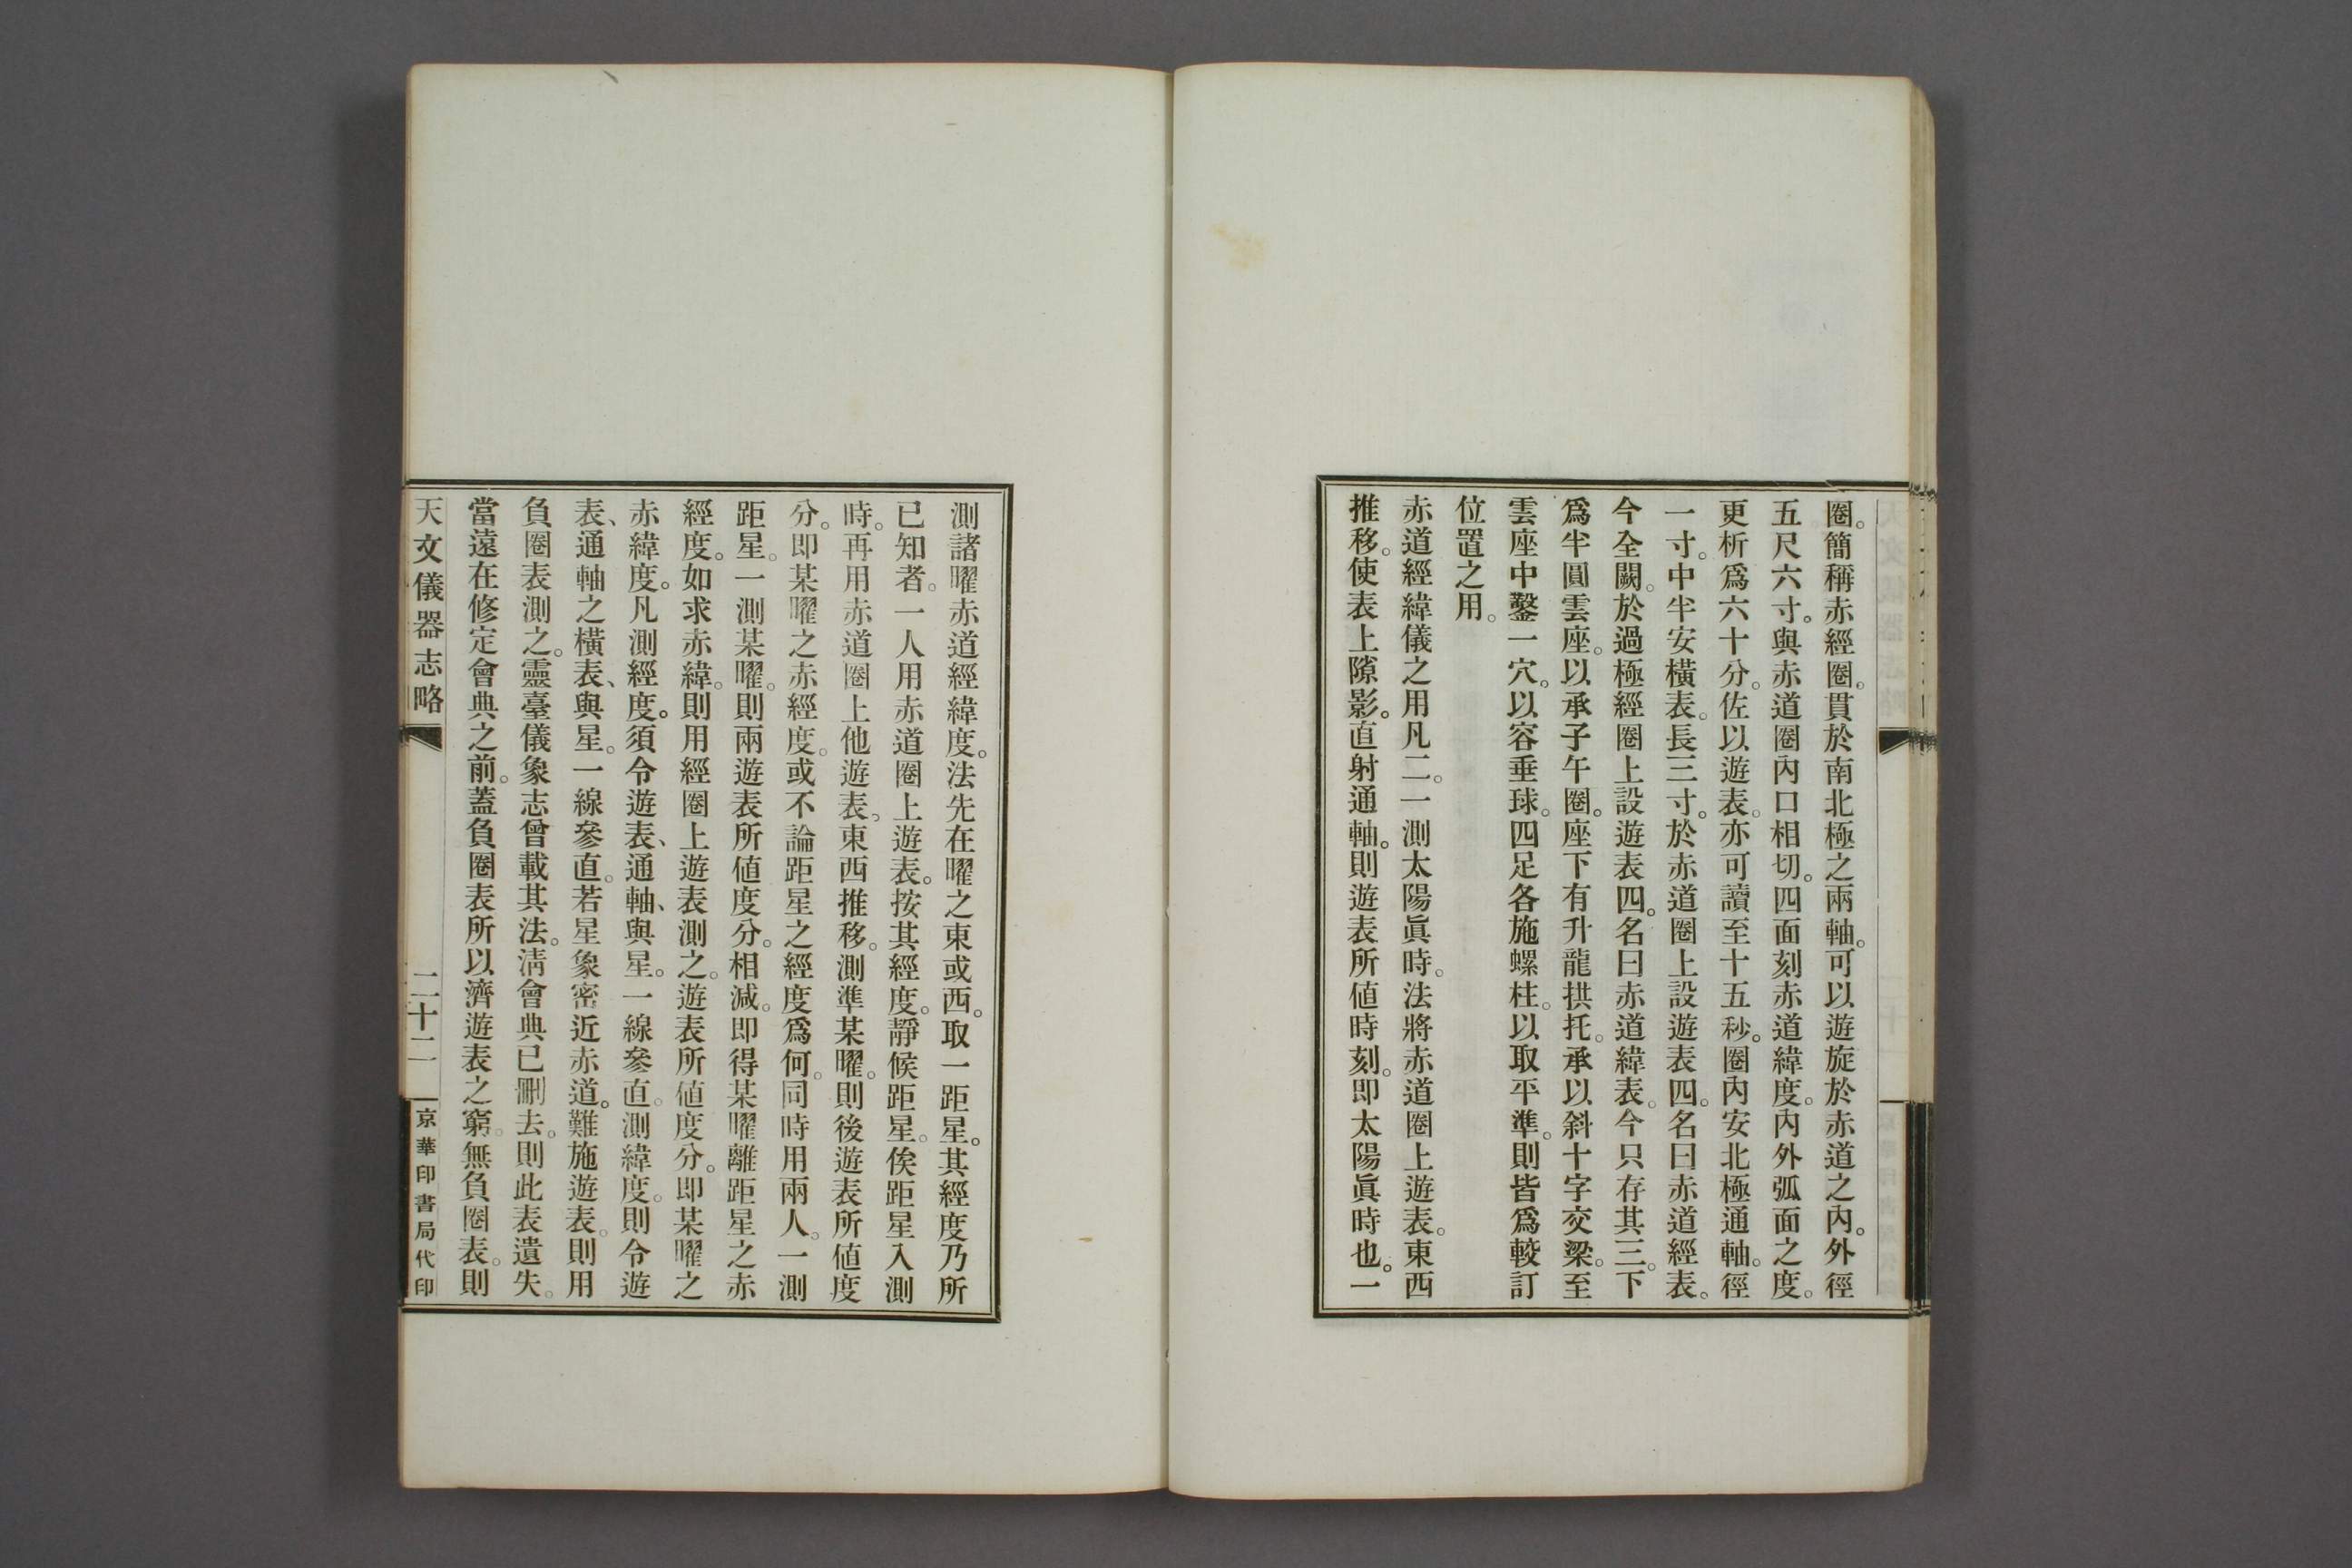 圈。簡稱赤經圈。貫於南北極之兩軸。可以遊旋於赤道之內。外徑
五尺六寸。與赤道圈內口相切。四面刻赤道緯度。內外弧面之度。
更析爲六十分。佐以遊表。亦可讀至十五秒。圈內安北極通軸。徑
一寸。中半安橫表。長三寸。於赤道圈上設遊表四。名曰赤道經表。
今全闕。於過極經圈上設遊表四。名曰赤道緯表。今只存其三。下
爲半圓雲座。以承子午圈。座下有升龍拱托。承以斜十字交梁。至
雲座中鑿一穴。以容垂球。四足各施螺柱。以取平準。則皆爲較訂
位置之用。
赤道經緯儀之用凡二。一測太陽眞時。法將赤道圈上遊表。東西
推移。使表上隙影。直射通軸。則遊表所値時刻。即太陽眞時也。一
測諸曜赤道經緯度。法先在曜之東或西。取一距星。其經度乃所
已知者。一人用赤道圈上遊表。按其經度。靜候距星。俟距星入測
時。再用赤道圈上他遊表。東西推移。測準某曜。則後遊表所値度
分。即某曜之赤經度。或不論距星之經度爲何。同時用兩人。一測
距星。一測某曜。則兩遊表所値度分。相減。即得某曜離距星之赤
經度。如求赤緯。則用經圈上遊表測之。遊表所値度分。即某曜之
赤緯度。凡測經度。須令遊表、通軸、與星。一線參直。測緯度。則令遊
表、通軸之橫表、與星。一線參直。若星象密近赤道。難施遊表。則用
負圈表測之。靈臺儀象志曾載其法。淸會典已刪去。則此表遺失。
當遠在修定會典之前。蓋負圈表所以濟遊表之窮。無負圈表。則
天文儀器志略
二十二
京華印書局代印